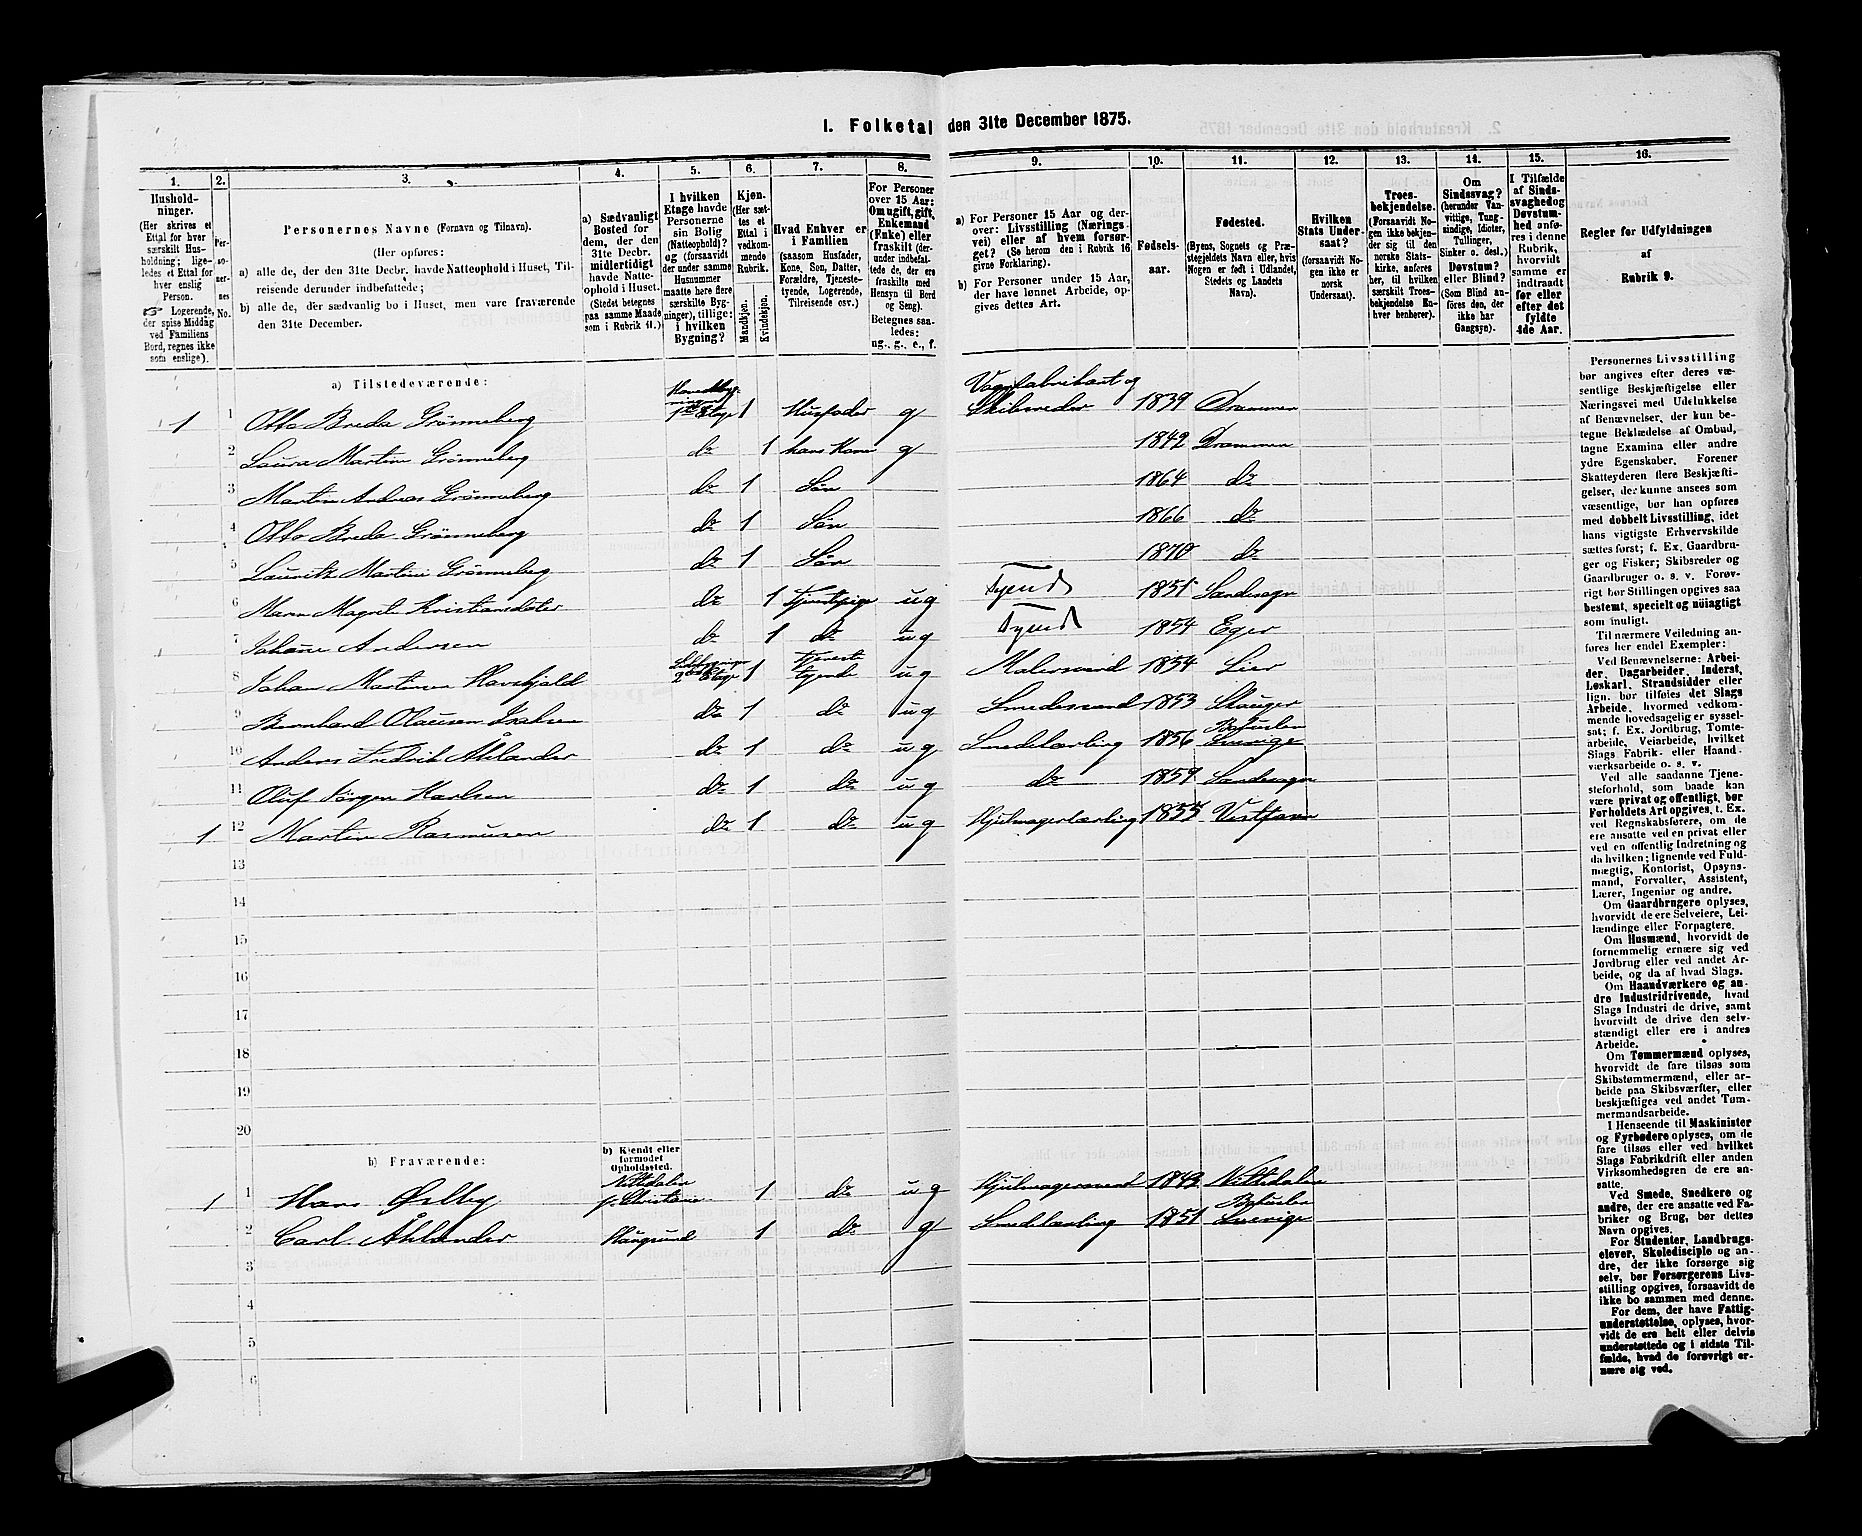 I. Folketal den 31te December 1875.
1. 2. 3. 4. 5. 6. 7. 8. 9. 10. 11. 12. 13. 14. 15. 16.
Husholdninger.
(Her skrives et
Ettal for hver
særskilt Husholdning;
ligeledes et Ettal for
hver enslig
Person.
☞ Logerende,
der spise Middag
ved Familiens
Bord, regnes ikke
som enslige).
Personernes No.
Personernes Navne (Fornavn og Tilnavn).
(Her opføres:
a) alle de, der den 31te Decbr. havde Natteophold i Huset, Tilreisende
derunder indbefattede;
b) alle de, der sædvanlig bo i Huset, men vare fraværende
den 31te December.
a) Sædvanligt
Bosted for
dem, der den
31te Decbr.
midlertidigt
havde Natteophold
i Huset.
(Stedet betegnes
paa samme Maade
som i Rubrik 11.)
I hvilken
Etage havde
Personerne
sin Bolig
(Natteophold)?
og (forsaavidt
der under samme
Husnummer
maatte være flere
særskilte Bygninger),
tillige:
i hvilken
Bygning?
Kjøn.
(Her sættes
et
Ettal i
vedkommende
Rubrik.
Mandkjøn.
Kvindekjøn.
Hvad Enhver er
i Familien
(saasom Husfader,
Kone, Søn, Datter,
Forældre, Tjenestetyende,
Logerende,
Tilreisende osv.)
For Personer
over 15 Aar:
Om ugift, gift,
Enkemand
(Enke) eller
fraskilt (derunder
indbefattede
de, der ere
fraskilte med
Hensyn til Bord
og Seng).
Betegnes saaledes:
ug., g., e., f.
a) For Personer 15 Aar og derover:
Livsstilling (Næringsvei)
eller af hvem forsørget?
(Se herom den i Rubrik 16
givne Forklaring).
b) For Personer under 15 Aar,
der have lønnet Arbeide, opgives
dettes Art.
Fødselsaar.
Fødested.
(Byens, Sognets og Præstegjeldets
Navn eller, hvis
Nogen er født i Udlandet,
Stedets og Landets
Navn).
Hvilken
Stats Undersaat?
(forsaavidt Nogen
ikke er
norsk
Undersaat).
Troesbekjendelse.
(Forsaavidt Nogen
ikke bekjender
sig til den
norske Statskirke,
anføres
her, til hvilken
særskilt Troesbekjendelse
Enhver
henhører).
Om
Sindssvag?
(herunder Vanvittige,
Tungsindige,
Idioter,
Tullinger,
Sinker o. desl.)
Døvstum?
eller Blind?
(Som Blind anføres
den, der
ikke har
Gangsyn).
I Tilfælde
af Sindssvaghed
og
Døvstumhed
anføres
i denne
Rubrik,
hvorvidt
samme er
indtraadt
før eller
efter det
fyldte
4de Aar.
Regler for Udfyldningen
af
Rubrik 9.
a) Tilstedeværende:
1 1 Otto Breda Grønneberg 1ste Etage 1 Husfader g Vognfabrikant og Skibsreder 1839 Drammen
2 Laura Martine Grønneberg do 1 hans Kone g 1842 Drammen
3 Martin Andreas Grønneberg do 1 Søn 1864 do
4 Otto Breda Grønneberg do 1 Søn 1866 do
5 Lauritz Martin Grønneberg do 1 Søn 1870 do
6 Maren Magret Kristiansdatter do 1 Tjenestepige ug Tyende 1851 Sandesogn
7 Johanne Andersen do 1 do ug Tyende 1854 Eger
8 Johan Martinsen Havskjold 2den Etage 1 Tjenestetyende ug Malersvend 1854 Lier
9 Bernhard Olausen Isaksen do 1 do ug Smedesvend 1853 Skauger
10 Anders Fredrik Åhlander do 1 do ug Smedelærling 1856 Bohuslen Sverige
11 Oluf Jørgen Karlsen do 1 do ug do 1859 Sandesogn
1 12 Martin Rasmusen do 1 do ug Hjulmagerlærling 1855 Vestfossen
13
14
15
16
17
18
19
20
b) Fraværende:
b) Kjendt eller
formodet
Opholdssted.
1 1 Hans Østby Nittedalen p. Christiania 1 do ug Hjulmagersvend 1843 Nittedalen
2 Carl Åhlander Haugsund 1 do g Smedelærling 1851 Bohuslen Sverige
3
4
5
6
Personernes Livsstilling
bør angives efter deres væsentlige
Beskjæftigelse eller
Næringsvei med Udelukkelse
af Benævnelser, der kun betegne
Beklædelse af Ombud,
tagne Examina eller andre
ydre Egenskaber. Forener
Skatteyderen flere Beskjæftigelser,
der kunne ansees som
væsentlige, bør han opføres
med dobbelt Livsstilling, idet
hans vigtigste Erhvervskilde
sættes først; f. Ex. Gaardbruger
og Fisker; Skibsreder og
Gaardbruger o. s. v. Forøvrigt
bør Stillingen opgives saa
bestemt, specielt og nøiagtigt
som muligt.
Til nærmere Veiledning anføres
her endel Exempler:
Ved Benævnelserne: Arbeider,
Dagarbeider, Inderst,
Løskarl, Strandsidder eller
lign. bør tilføies det Slags
Arbeide, hvormed vedkommende
hovedsagelig er sysselsat;
f. Ex. Jordbrug, Tomtearbeide,
Veiarbeide, hvilket
Slags Fabrik- eller Haandværksarbeide
o. s. v.
Ved alle saadanne Tjenesteforhold,
som baade kan
være privat og offentligt, bør
Forholdets Art opgives, t. Ex.
ved Regnskabsførere, om de
ere ansatte ved en privat eller
ved en offentlig Indretning og
da hvilken; lignende ved Fuldmægtig,
Kontorist, Opsynsmand,
Forvalter, Assistent,
Lærer, Ingeniør og andre.
Om Gaardbrugere oplyses,
hvorvidt de ere Selveiere, Leilændinge
eller Forpagtere.
Om Husmænd, hvorvidt de
fornemmelig ernære sig ved
Jordbrug eller ved andet Arbeide,
og da af hvad Slags.
Om Haandværkere og andre
Industridrivende, hvad
Slags Industri de drive, samt
hvorvidt de drive den selvstændigt
eller ere i andres
Arbeide.
Om Tømmermænd oplyses,
hvorvidt de fare tilsøs som
Skibstømmermænd, eller arbeide
paa Skibsværfter, eller
beskjæftiges ved andet Tømmermandsarbeide.
I Henseende til Maskinister
og Fyrbødere oplyses, om de
fare tilsøs eller ved hvilket
Slags Fabrikdrift eller anden
Virksomhedsgren de ere ansatte.
Ved Smede, Snedkere og
andre, der ere ansatte ved Fabriker
og Brug, bør dettes
Navn opgives.
For Studenter, Landbrugselever,
Skoledisciple og andre,
der ikke forsørge sig
selv, bør Forsørgerens Livsstilling
opgives, forsaavidt de
ikke bo sammen med denne.
For dem, der have Fattigunderstøttelse,
oplyses, hvorvidt
de ere helt eller delvis
understøttede og i sidste Tilfælde,
hvad de forøvrigt ernære
sig ved.